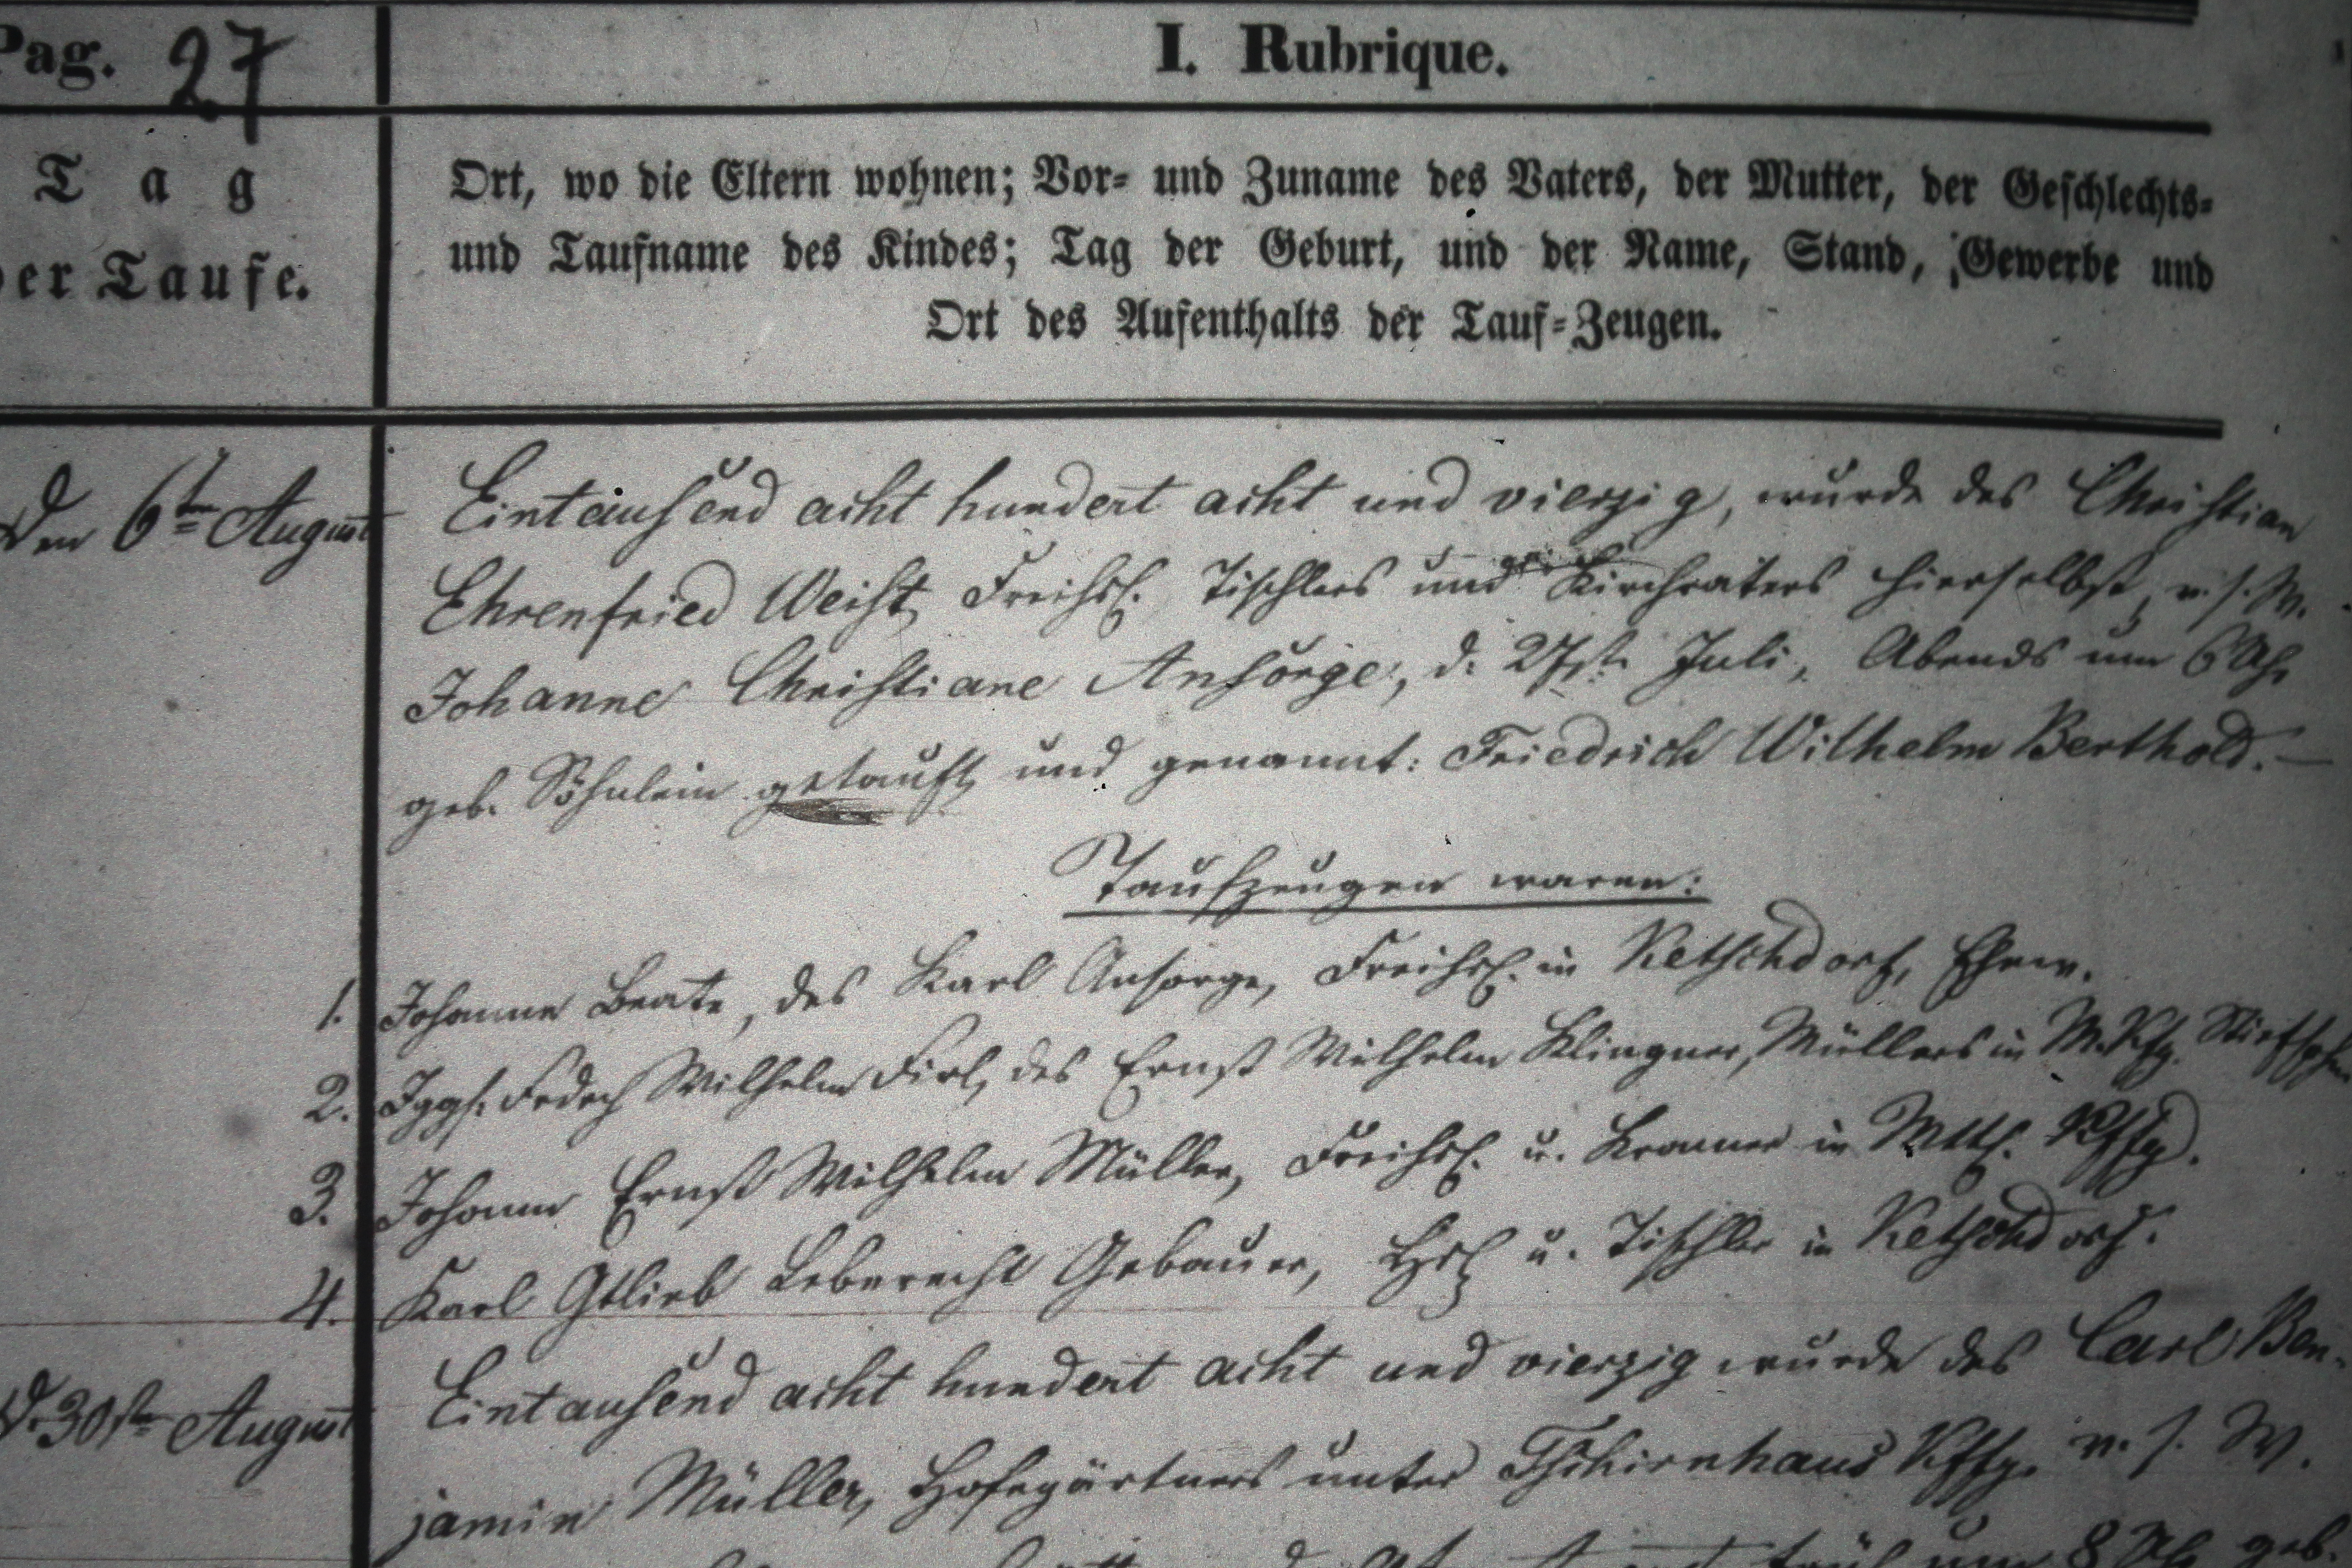 Pag. 27
I. Rubrique.
Tag
der Taufe.
Ort, wo die Eltern wohnen; Vor- und Zuname des Vaters, der Mutter, der Geschlechts-
und Taufname des Kindes; Tag der Geburt, und der Name, Stand, Gewerbe und
Ort des Aufenthalts der Tauf-Zeugen.
Den 6ten August
Eintausend acht hundert acht und vierzig, wurde des Christian
Ehrenfried Weist, Freihsl. Tischlers und Kirchvaters hierselbst, v. s. W.
Johanne Christiane Ansorge, d. 27st. Juli, Abends um 6 Uhr
geb. Söhnlein getauft und genannt: Friedrich Wilhelm Berthold. —
Taufzeugen waren:
1. Johanne Beate, des Karl Ansorge, Freihsl. in Ketschdorf, Ehew.
2. Jggs. Fedrch Wilhelm Firl, des Ernst Wilhelm Klingner, Müllers in M. Kffg. Stiefsohn
3. Johann Ernst Wilhelm Müller, Freihsl. u. Kramer in Mttl. Kffg.
4. Karl Gtlieb Leberecht Gebauer, Hsl. u. Tischler in Ketschdorf.
d. 30sten August
Eintausend acht hundert acht und vierzig wurde des Carl Ben-
jamin Müller, Hofegärtners unter Tschirnhaus Kffg. v. s. W.
früh um 8 Uh. geb.